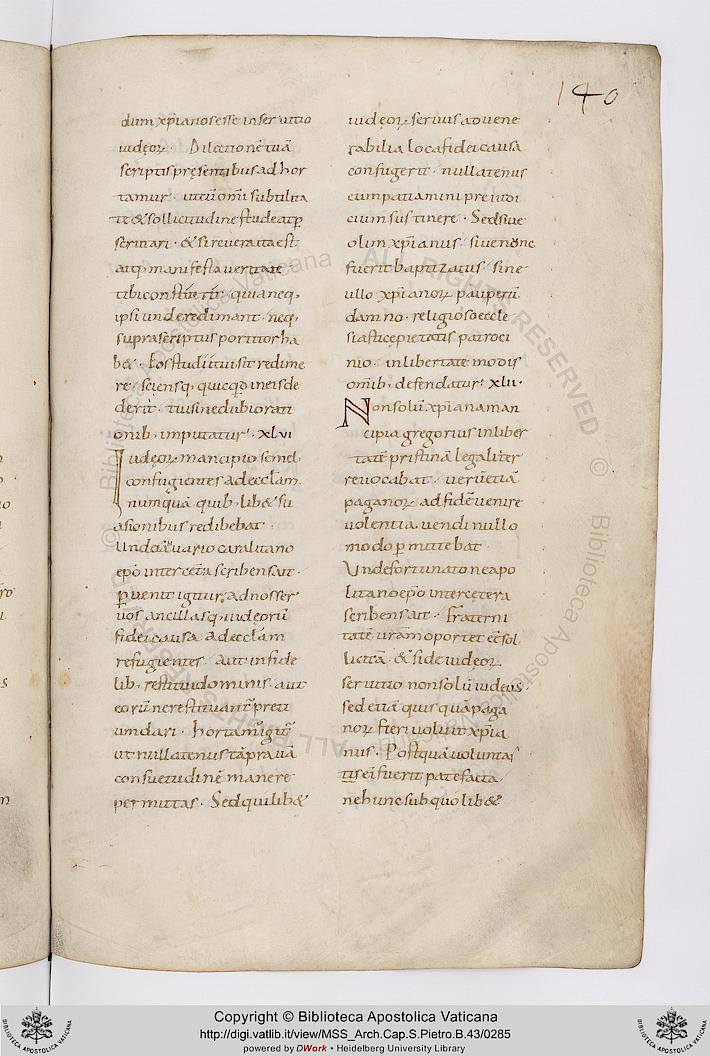 140
dum xp̃ianos esse in seruitio
iudęoꝝ. Dilectionē tuā
scriptis presentibus ad hor
tamur. ut cū omī subtilita
te & sollicitudine studeat ꝑ
scrutari. & si reuera ita est
atq; manifesta ueritate
tibi constiterit. quia neq;
ipsi und eredimant. neq;
suprascriptus portitor ha
be&. eos studii tui sit redime
re. sciens q; quicqd in eis de
derit. tuis inedubiorati
onib; imputatur. XLVI
Iudęoꝝ mancipio semel
confugientes ad ecclam
numquā quib; lib& su
asionibus redibebat.
Unde ianuario caralitano
epō inter cetā scribens ait.
ꝑuenit igitur ad nos ser
uos ancillasq; iudęorū
fidei causa ad ecclam
refugientes. aut infide
lib; restitui dominis. aut
eorū ne restituant᷑ preti
um dari. hortam᷑ igit᷑
ut nullatenus tā prauā
consuetudinē manere
permittas. Sed quilib&
iudęoꝝ seruus ad uene
rabilia loca fidei causa
confugerit. nullatenus
eum patiamini preiudi
cium sustinere. Sed siue
olim xp̃ianus. siue nunc
fuerit baptizatus. sine
ullo xp̃ianoꝝ pauperū
damno. religioso eccle
siasticę pietatis patroci
nio. in libertatē modis
omib; defendatur. XLII.
Non solū xp̃iana man
cipia gregorius in liber
tatē pristinā legaliter
reuocabat. uerū etiā
paganoꝝ ad fidē uenire
uolentia. uendi nullo
modo ꝑmittebat.
Unde fortunato neapo
litano epō inter cetera
scribens ait. Fraterni
tatē urām oportet eē sol
licitā. & si de iudeoꝝ
seruitio non solū iudeus.
sed etiā quisquā paga
noꝝ fieri uoluit xp̃ia
nus. Postquā uoluntas
eī fuerit patefacta
ne hunc sub quolib&
Copyright © Biblioteca Apostolica Vaticana
http://digi.vatlib.it/view/MSS_Arch.Cap.S.Pietro.B.43/0285
powered by DWork • Heidelberg University Library
BIBLIOTECA APOSTOLICA VATICANA
BIBLIOTECA APOSTOLICA VATICANA